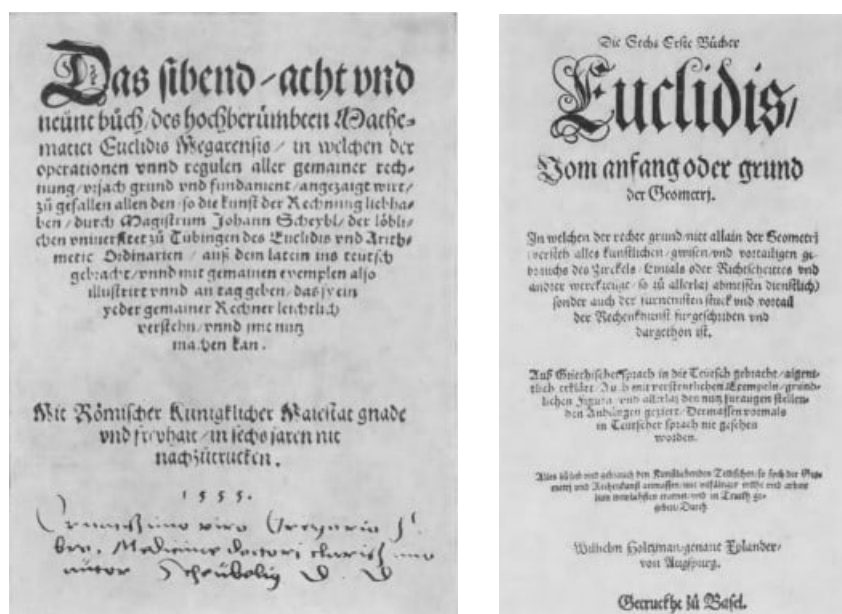 Das sibend/acht vnd
neünt bůch/des hochberümbten Mathe-
matici Euclidis Megarensis/in welchen der
operationen vnnd regulen aller gemainer rech-
nung/vrsach grund vnd fundament/angezaigt wirt/
zů gefallen allen den/so die kunst der Rechnung liebha-
ben/durch Magistrum Johann Scheybl/der löbli-
chen vniuersitet zů Tübingen des Euclidis vnd Arith-
metic Ordinarien/auß dem latein ins teutsch
gebracht/vnnd mit gemainen exemplen also
illustrirt vnnd an tag geben/das sy ein
yeder gemainer Rechner leichtlich
verstehn/vnnd jme nutz
machen kan.
Mit Römischer Künigklicher Maiestat gnade
vnd freyhait/in sechs jaren nit
nachzůtrucken.
1555.
viro Gregorio
Medicine doctori
D. D.
Die Sechs Erste Bücher
Euclidis/
Vom anfang oder grund
der Geometrj.
In welchen der rechte grund/nitt allain der Geometrj
(versteh alles kunstlichen/gwisen/vnd vortailigen ge-
brauchs des Zirckels/Linials oder Richtscheittes vnd
andrer werckzeüge/so zů allerlaj abmessen dienstlich)
sonder auch der fürnemsten stuck vnd vortail
der Rechenkhunst fürgeschriben vnd
dargethon ist.
Auß Griechischer sprach in die Teütsch gebracht/aigent-
lich erklärt/Auch mit verstentlichen Exempeln/gründ-
lichen Figurn/vnd allerlaj den nutz für augen stellen-
den Anhängen geziert/Dermassen vormals
in Teütscher sprach nie gesehen
worden.
Alles zů lieb vnd gebrauch den Kunstliebenden Teütschen/so sich der Geo-
metrj vnd Rechenkunst anmassen/mit vilfältiger mühe vnd arbait
zum trewlichsten erarnet/vnd in Truckh ge-
geben/Durch
Wilhelm Holtzman/genant Xylander/
von Augspurg.
Getruckht zů Basel.